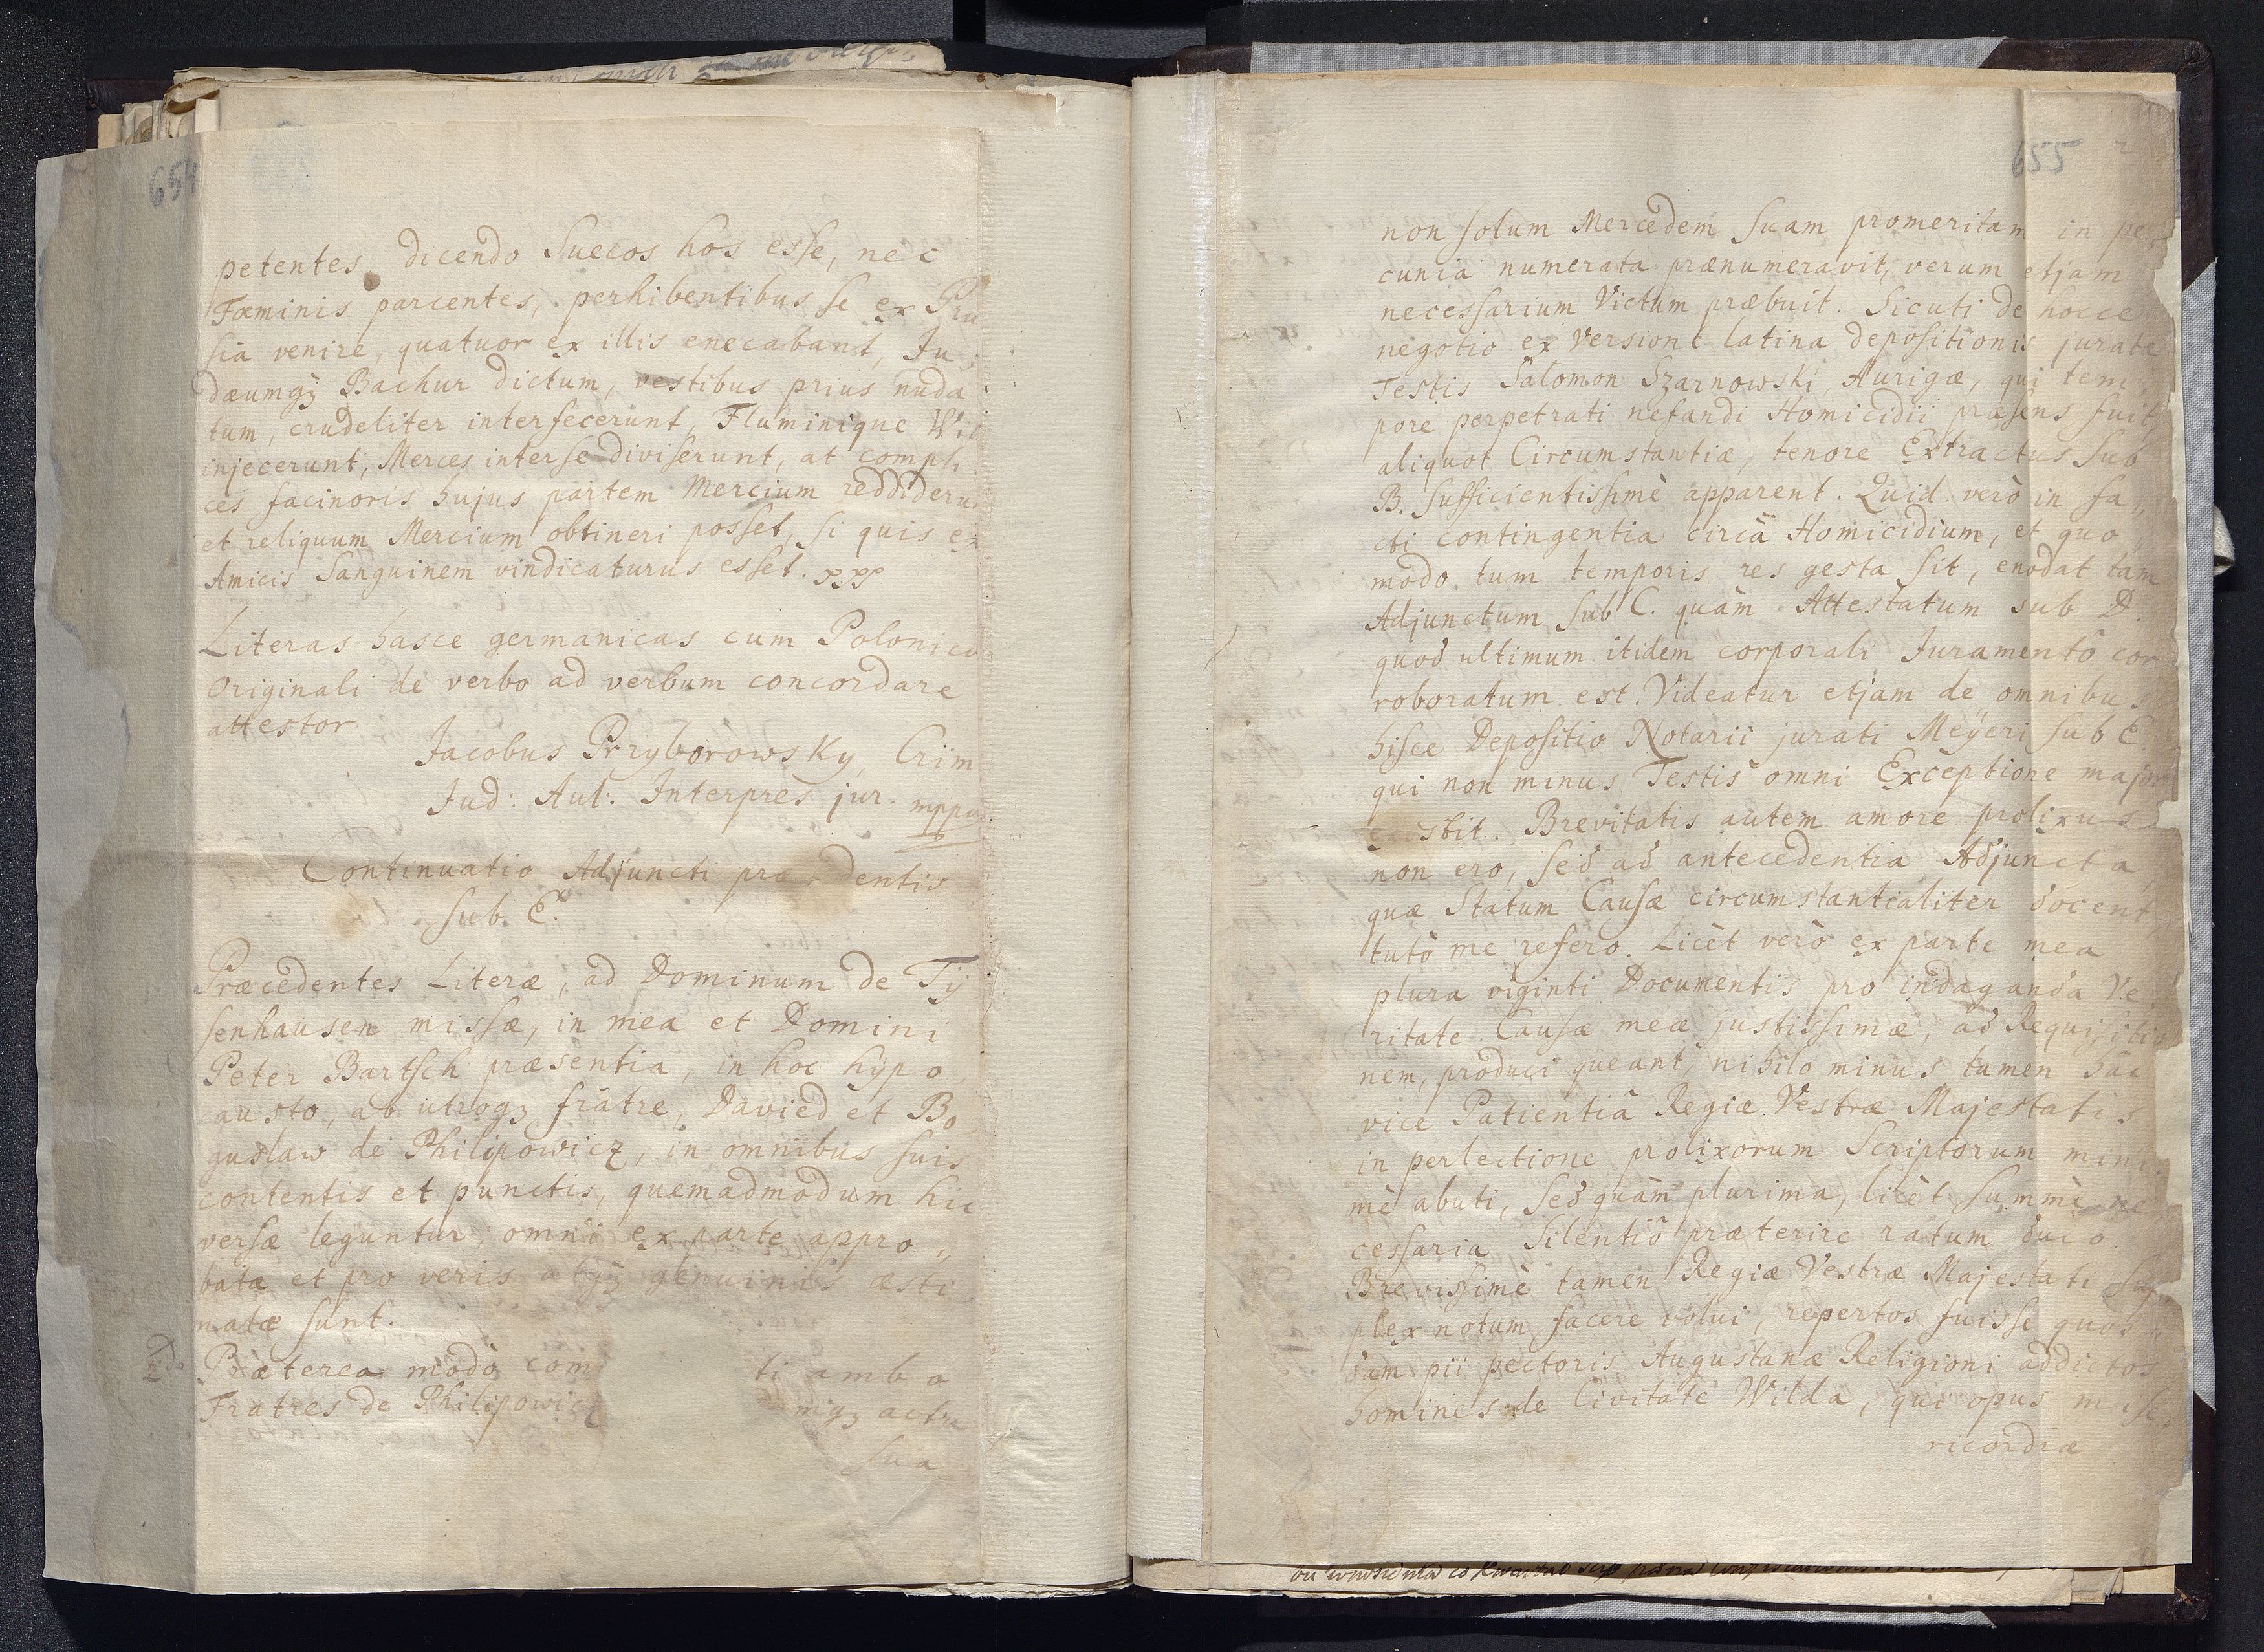 654
petentes, dicendo Suecos hos esse, nec
Fæminis parcentes, perhibentibus se ex Pru
sia venire, quatuor ex illis enecabant, Ju,
dæumqȝ Bachur dictum, vestibus prius nuda
tum, crudeliter interfecerunt, Fluminique Wil
injecerunt, Merces inter se diviserunt, at compli
ces facinoris hujus partem Mercium reddideru
et reliquum Mercium obtineri posset, si quis ex
Amicis Sanguinem vindicaturus esset. ppp
Literas hasce germanicas cum Polonico
Originali de verbo ad verbum concordare
attestor
Jacobus Przyborowsky, Crim
Jud: Aul: Interpres jur. mppa
Continuatio Adjuncti præ dentis
sub. E.
Præcedentes Literæ, ad Dominum de Tÿ
senhausen missæ, in mea et Domini
Peter Bartsch præsentia, in hoc hÿpo
austo, ab utroqȝ fratre, Dawied et Bo
guslaw de Philipowicz, in omnibus suis
contentis et punctis, quemadmodum hic
versæ leguntur, omni ex parte appro„
batæ et pro veris atqȝ genuinis æsti
matæ sunt.
2do Præterea modò com ti ambo
Fratres de Philipowicz miqȝ actu
sua
655
non solum Mercedem suam promeritam in pe
cunia numerata prænumeravit, verum etjam
necessarium Victum præbuit. Sicuti de hocce
negotio ex Versione latina depositionis jurate
Testis Salomon Szarnowski Aurigæ, qui tem
pore perpetrati nefandi Homicidii præsens fuit,
aliquot Circumstantiæ, tenore Extractus sub
B. sufficientissimè apparent. Quid verò in fa„
cti contingentia circà Homicidium, et quo„
modo tum temporis res gesta sit, enodat tam
Adjunctum sub C. quàm Attestatum sub D.
quod ultimum itidem corporali Juramentô cor
roboratum est. Videatur etjam de omnibus
hisce Depositio Notarii jurati Meÿeri sub E
qui non minus Testis omni Exceptione major
stit. Brevitatis autem amore prolixus
non ero, sed ad antecedentia Adjuncta,
quæ Statum Causæ circumstantialiter docent,
tutò me refero. Licèt verò ex parte mea
plura viginti Documentis pro indaganda Ve
ritate Causæ meæ justissimæ, ad Requisitio
nem, produci queant, nihilo minus tamen hâc
vice Patientiâ Regiæ Vestræ Majestatis
in perlectione prolixorum Scriptorum mini
mè abuti, sed quàm plurima, licèt summè ne
cessaria Silentiô præterire ratum duco.
Brevissimè tamen Regiæ Vestræ Majestati sup
plex notum facere volui, repertos fuisse quos
dam pii pectoris Augustanæ Religioni addictos
homines de Civitate Wilda, qui opus mise,
ricordiæ